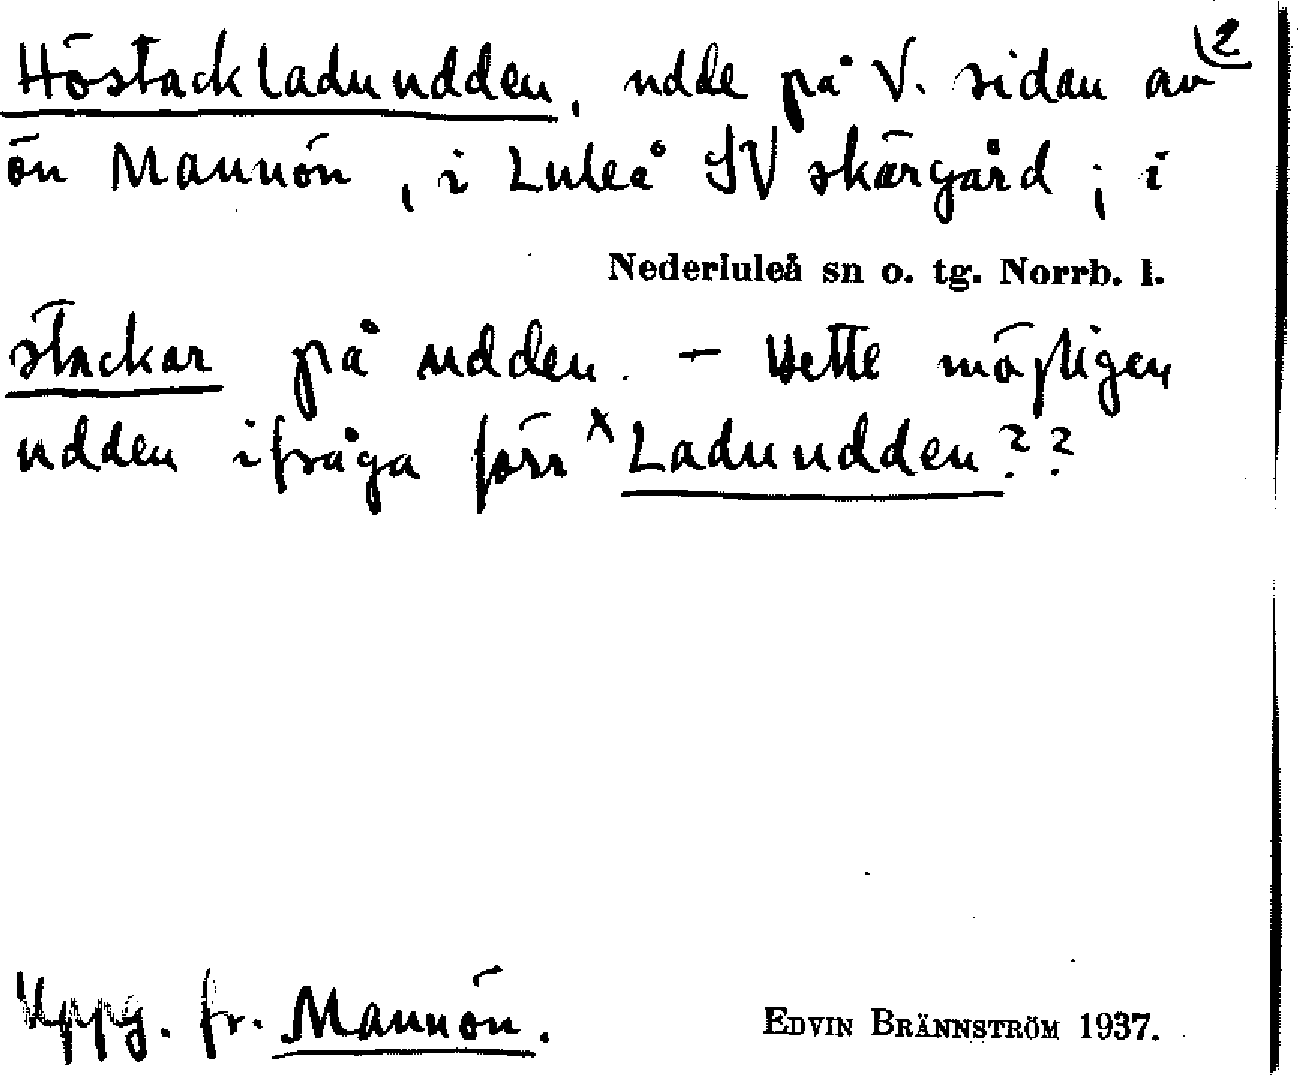 Höstackladuudden, udde på V. sidan av 2
ön Mannön, i Luleå SV skärgård; i
Nederluleå sn o. tg. Norrb. l.
stackar på udden. – Hette möjligen
udden ifråga förr x Laduudden??
Uppg. fr. Mannön.
EDVIN BRÄNNSTRÖM 1937.